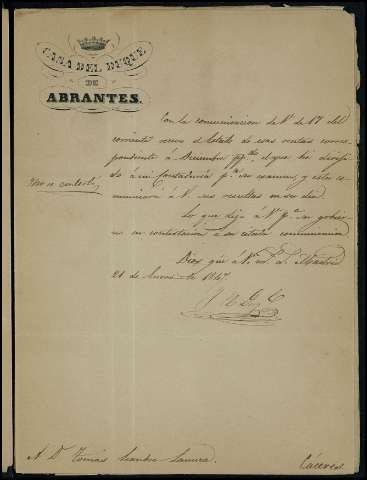 CASA DEL DUQUE
DE
ABRANTES.
Con la comunicacion de V. de 17 del
corriente el Estado de esas rentas corres-
pondiente á Diciembre pp.do el que he dirigi-
do á mi Contaduría p.a su examen, y esta co-
municará á V. sus resultas en su dia.
Lo que dijo á V. p.a su gobier-
no en contestacion á su citada comunicacion
Dios gue á V. m. a. Madrid
21 de Enero de 1847
A D. Tomás Leandro
Cáceres